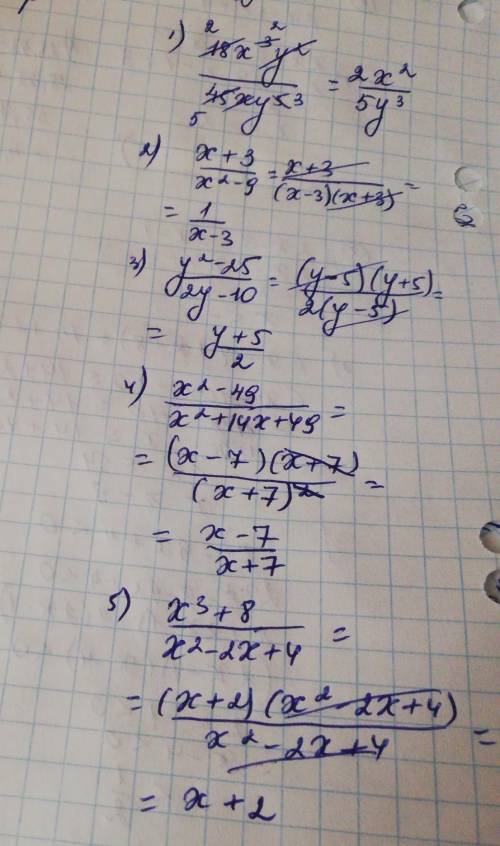 1) 18x³y² / 45xy⁵ = 2x² / 5y³
2) x+3 / x²-9 = x+3 / (x-3)(x+3) =
= 1 / x-3
3) y²-25 / 2y-10 = (y-5)(y+5) / 2(y-5) =
= y+5 / 2
4) x²-49 / x²+14x+49 =
= (x-7)(x+7) / (x+7)² =
= x-7 / x+7
5) x³+8 / x²-2x+4 =
= (x+2)(x²-2x+4) / x²-2x+4 =
= x+2